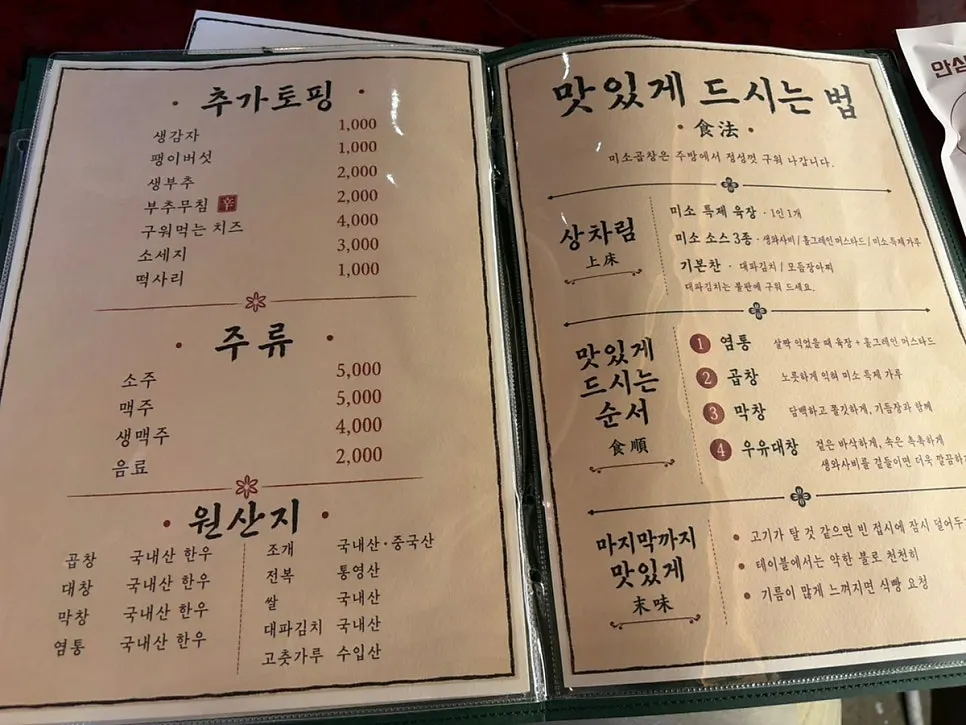 추가토핑
생감자 1,000
팽이버섯 1,000
생부추 2,000
부추무침 辛 2,000
구워먹는 치즈 4,000
소세지 3,000
떡사리 1,000
주류
소주 5,000
맥주 5,000
생맥주 4,000
음료 2,000
원산지
곱창 국내산 한우
대창 국내산 한우
막창 국내산 한우
염통 국내산 한우
조개 국내산·중국산
전복 통영산
쌀 국내산
대파김치 국내산
고춧가루 수입산
맛있게 드시는 법
·食法·
미소곱창은 주방에서 정성껏 구워 나갑니다.
상차림
上床
미소 특제 육장 · 1인 1개
미소 소스 3종 · 생와사비 / 홀그레인 머스타드 / 미소 특제가루
기본찬 · 대파김치 / 모듬장아찌
대파김치는 불판에 구워 드세요.
맛있게
드시는
순서
食順
1 염통 살짝 익었을 때 육장 + 홀그레인 머스타드
2 곱창 노릇하게 익혀 미소 특제 가루
3 막창 담백하고 쫄깃하게, 기름장과 함께
4 우유대창 겉은 바삭하게, 속은 촉촉하게
생와사비를 곁들이면 더욱 깔끔하
마지막까지
맛있게
末味
• 고기가 탈 것 같으면 빈 접시에 잠시 덜어두
• 테이블에서는 약한 불로 천천히
• 기름이 많게 느껴지면 식빵 요청
안심